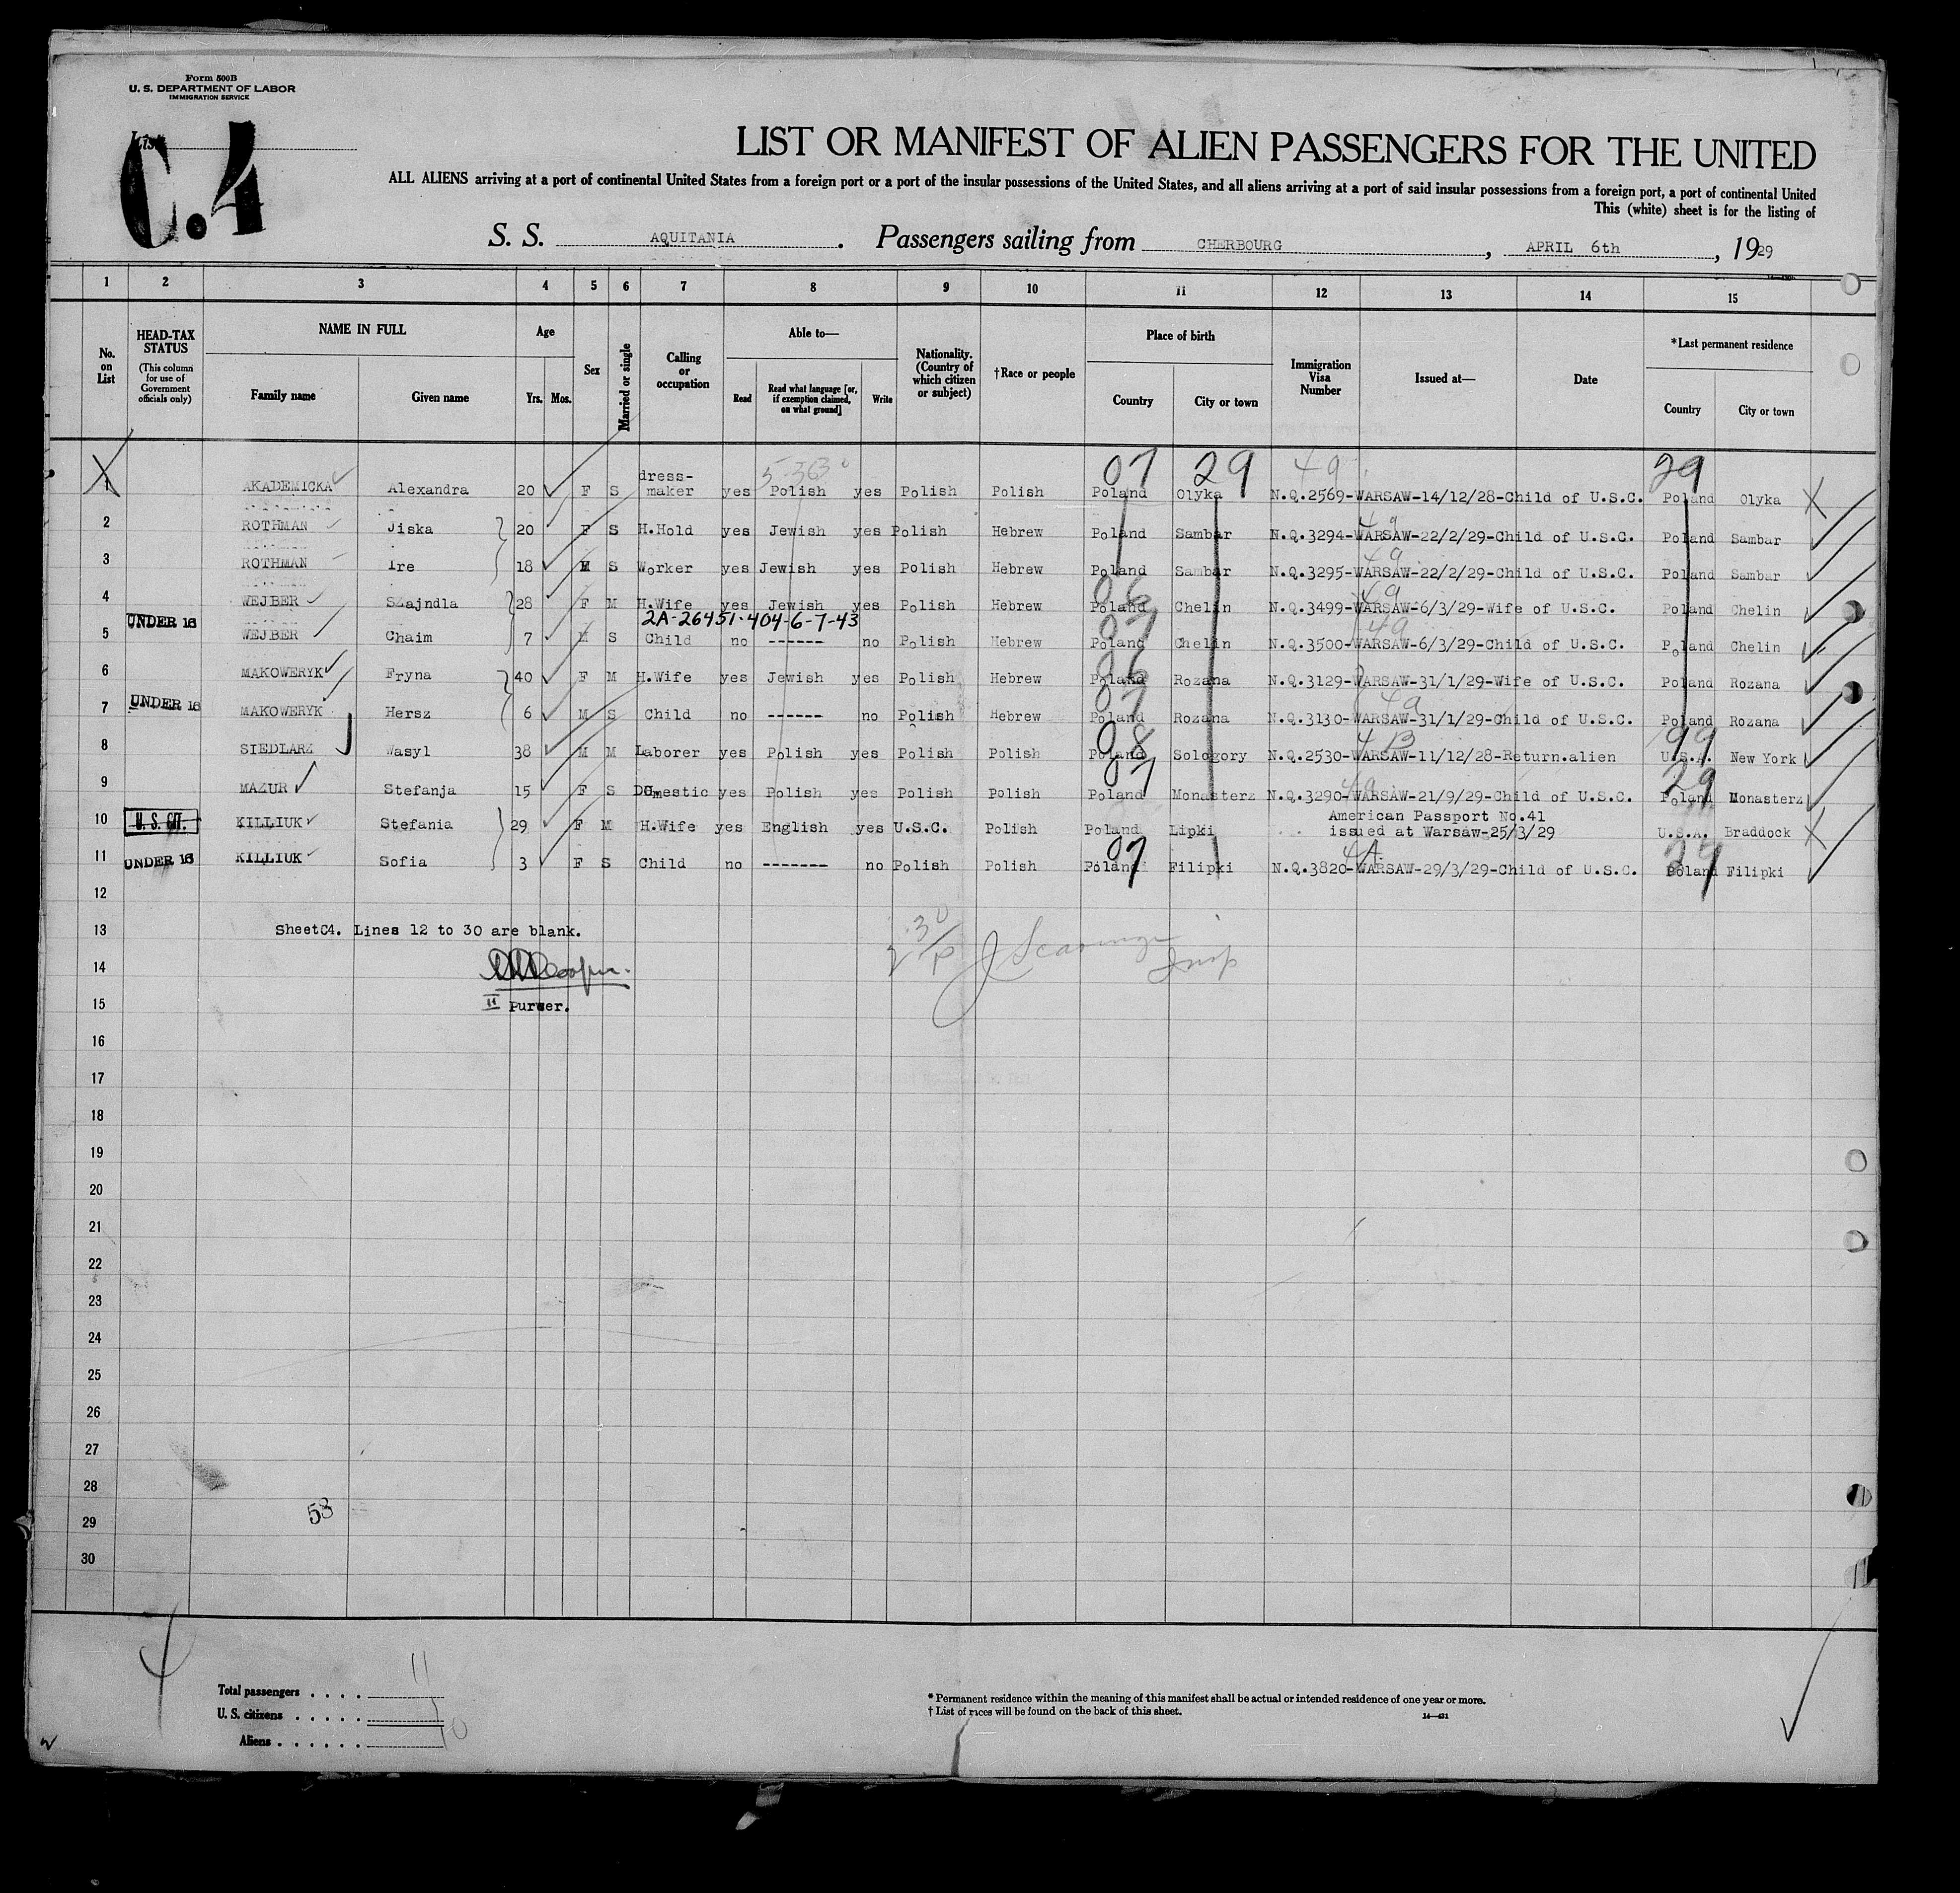 Form 500B
U. S. DEPARTMENT OF LABOR
IMMIGRATION SERVICE
List
C.4
LIST OR MANIFEST OF ALIEN PASSENGERS FOR THE UNITED
ALL ALIENS arriving at a port of continental United States from a foreign port or a port of the insular possessions of the United States, and all aliens arriving at a port of said insular possessions from a foreign port, a port of continental United
This (white) sheet is for the listing of
S. S. AQUITANIA. Passengers sailing from CHERBOURG, APRIL 6th, 1929
1 2 3 4 5 6 7 8 9 10 11 12 13 14 15
No. on List
HEAD-TAX STATUS (This column for use of Government officials only)
NAME IN FULL
Family name Given name
Age
Yrs. Mos.
Sex
Married or single
Calling or occupation
Able to—
Read Read what language [or, if exemption claimed, on what ground] Write
Nationality. (Country of which citizen or subject)
†Race or people
Place of birth
Country City or town
Immigration Visa Number
Issued at—
Date
*Last permanent residence
Country City or town
07 29 4a 29
1 AKADEMICKA Alexandra 20 F S dress-maker yes Polish yes Polish Polish Poland Olyka N.Q.2569-WARSAW-14/12/28-Child of U.S.C. Poland Olyka
2 ROTHMAN Jiska 20 F S H.Hold yes Jewish yes Polish Hebrew Poland Sambar N.Q.3294-WARSAW-22/2/29-Child of U.S.C. Poland Sambar
3 ROTHMAN Ire 18 M S Worker yes Jewish yes Polish Hebrew Poland Sambar N.Q.3295-WARSAW-22/2/29-Child of U.S.C. Poland Sambar
4 WEJBER Szajndla 28 F M H.Wife yes Jewish yes Polish Hebrew Poland Chelin N.Q.3499-WARSAW-6/3/29-Wife of U.S.C. Poland Chelin
2A-26451-404-6-7-43
5 UNDER 16 WEJBER Chaim 7 M S Child no ------ no Polish Hebrew Poland Chelin N.Q.3500-WARSAW-6/3/29-Child of U.S.C. Poland Chelin
6 MAKOWERYK Fryna 40 F M H.Wife yes Jewish yes Polish Hebrew Poland Rozana N.Q.3129-WARSAW-31/1/29-Wife of U.S.C. Poland Rozana
7 UNDER 16 MAKOWERYK Hersz 6 M S Child no ------ no Polish Hebrew Poland Rozana N.Q.3130-WARSAW-31/1/29-Child of U.S.C. Poland Rozana
8 SIEDLARZ Wasyl 38 M M Laborer yes Polish yes Polish Polish Poland Sologory N.Q.2530-WARSAW-11/12/28-Return.alien U.S.A. New York
9 MAZUR Stefanja 15 F S Domestic yes Polish yes Polish Polish Poland Monasterz N.Q.3290-WARSAW-21/9/29-Child of U.S.C. Poland Monasterz
10 U. S. CIT. KILLIUK Stefania 29 F M H.Wife yes English yes U.S.C. Polish Poland Lipki American Passport No.41 issued at Warsaw-25/3/29 U.S.A. Braddock
11 UNDER 16 KILLIUK Sofia 3 F S Child no ------- no Polish Polish Poland Filipki N.Q.3820-WARSAW-29/3/29-Child of U.S.C. Poland Filipki
12
13 SheetC4. Lines 12 to 30 are blank.
14
15 Purser.
16
17
18
19
20
21
22
23
24
25
26
27
28
29 58
30
Total passengers . . . . 11
U. S. citizens . . . . . 1
Aliens . . . . . . 10
* Permanent residence within the meaning of this manifest shall be actual or intended residence of one year or more.
† List of races will be found on the back of this sheet.
14—421